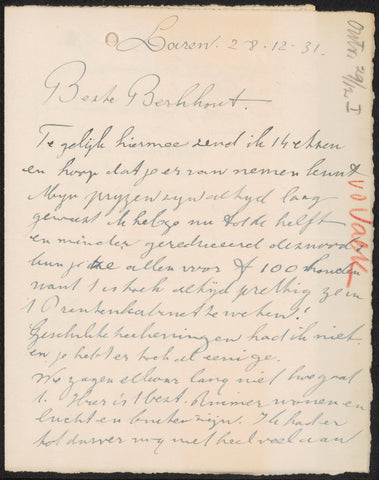 Laren. 28.-12-31.
Beste Berkhout.
Tegelijk hiermee zend ik 14 etsen
en hoop dat je ervan nemen kunt
Mijn pryzen zyn altyd laag
geweest ik heb ze nu tot de helft
en minder gereduceerd desnoods
kun je ze allen voor f 100 houden
want 't is toch altijd prettig ze in
't Prentenkabinet te weten!
Geschikte teekeningen had ik niet
en je hebt er toch al eenige.
We zagen elkaar lang niet hoe gaat
't. Hier is 't best. Ruimer wonen en
lucht en buiten zijn. Ik had er
tot dusver nog niet heel veel aan
Ontv. 29/12 I